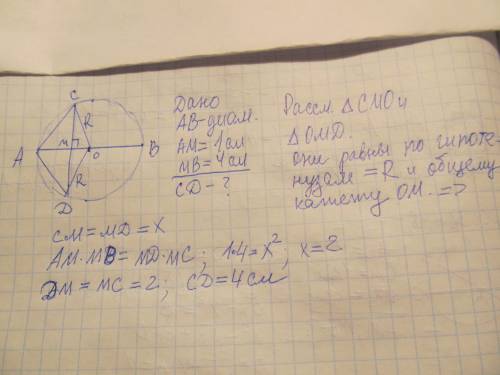 C
R
A
M
O
B
R
D
Дано
AB-диам.
AM=1см
MB=4см
CD-?
Рассм. △CMO и
△OMD.
они равны по гипоте-
нузам =R и общему
катету OM. =>
CM=MD=x
AM·MB=MD·MC; 1·4=x², x=2
DM=MC=2; CD=4см